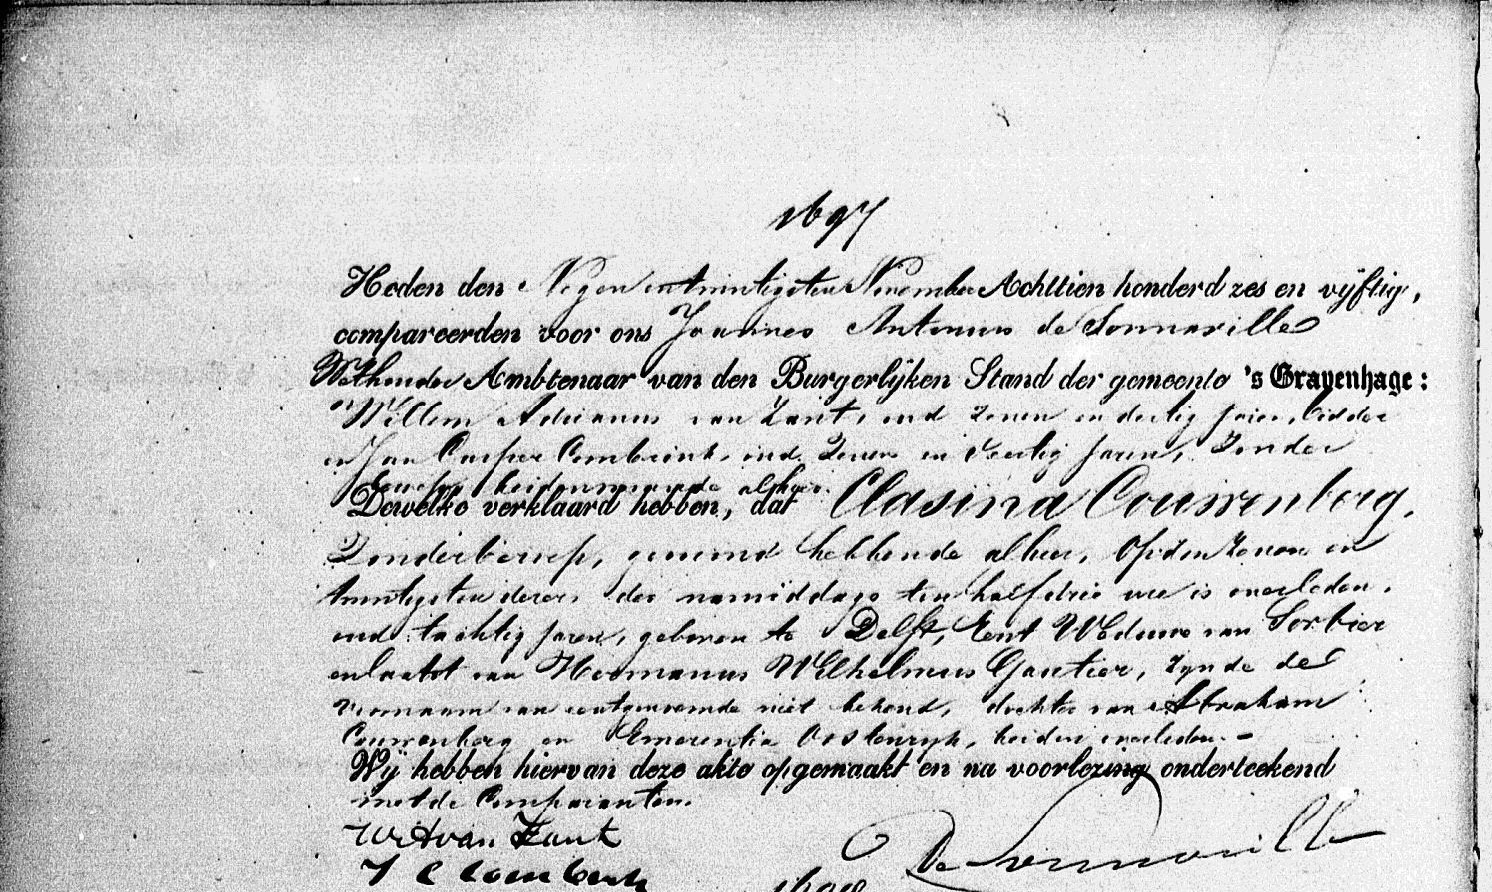 1697
Heden den Negen en twintigsten November Achttien honderd zes en vijftig,
compareerden voor ons Joannes Antonius de Sonnaville
Wethouder Ambtenaar van den Burgerlijken Stand der gemeente 's Gravenhage:
Willem Adrianus van Zant, oud zeven en dertig jaren, bidder
en Jan Casper Combrink, oud Zeven en Veertig jaren, Zonder
beroep, beiden wonende alhier.
Dewelke verklaard hebben, dat Clasina Couwenberg,
Zonder beroep, gewoond hebbende alhier, op den Zeven en
twintigsten dezer, des namiddags ten half drie ure is overleden,
oud tachtig jaren, geboren te Delft, Eerst Weduwe van Sorbier
en laatst van Hermanus Wilhelmus Gautier, zynde de
voornaam van eerstgenoemde niet bekend, dochter van Abraham
Couwenberg en Emerentia Oostenryk, beiden overleden. -
Wij hebben hiervan deze akte opgemaakt en na voorlezing onderteekend
met de Comparanten.
W A van Zant
J C Combrink
De Sonnaville
1698